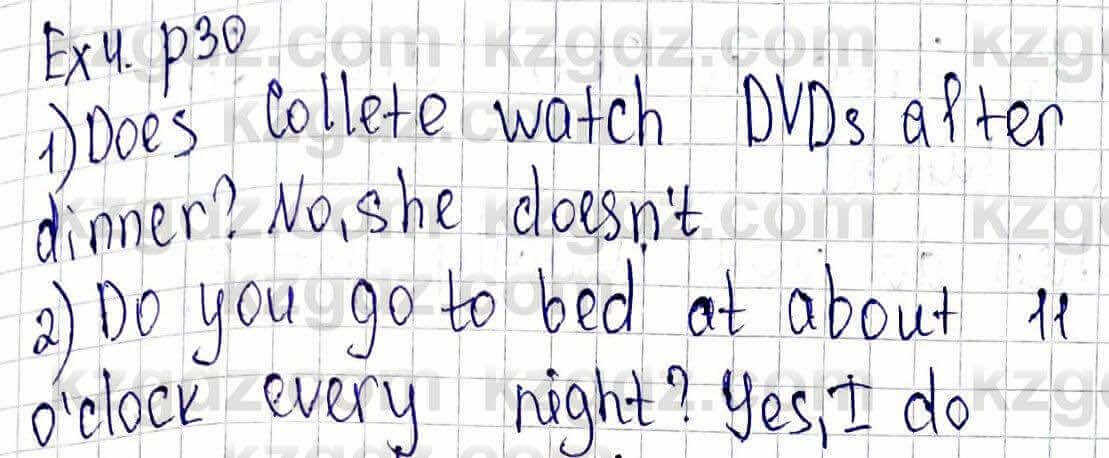 Ex 4. p30
1) Does Collete watch DVDs after
dinner? No, she doesn't
2) Do you go to bed at about 11
o'clock every night? Yes, I do